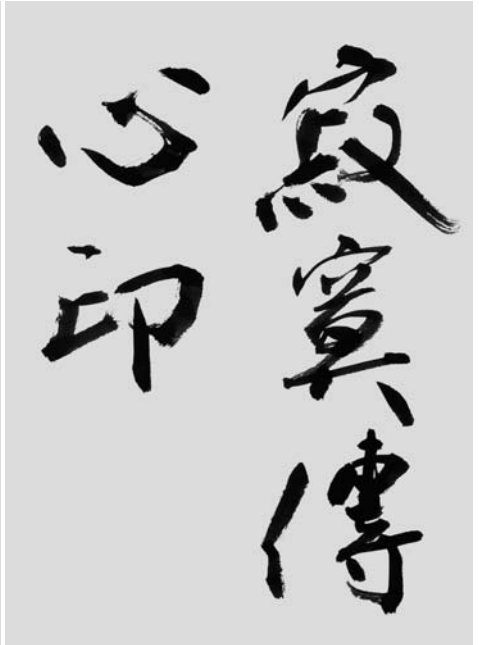 寂寞傳
心印